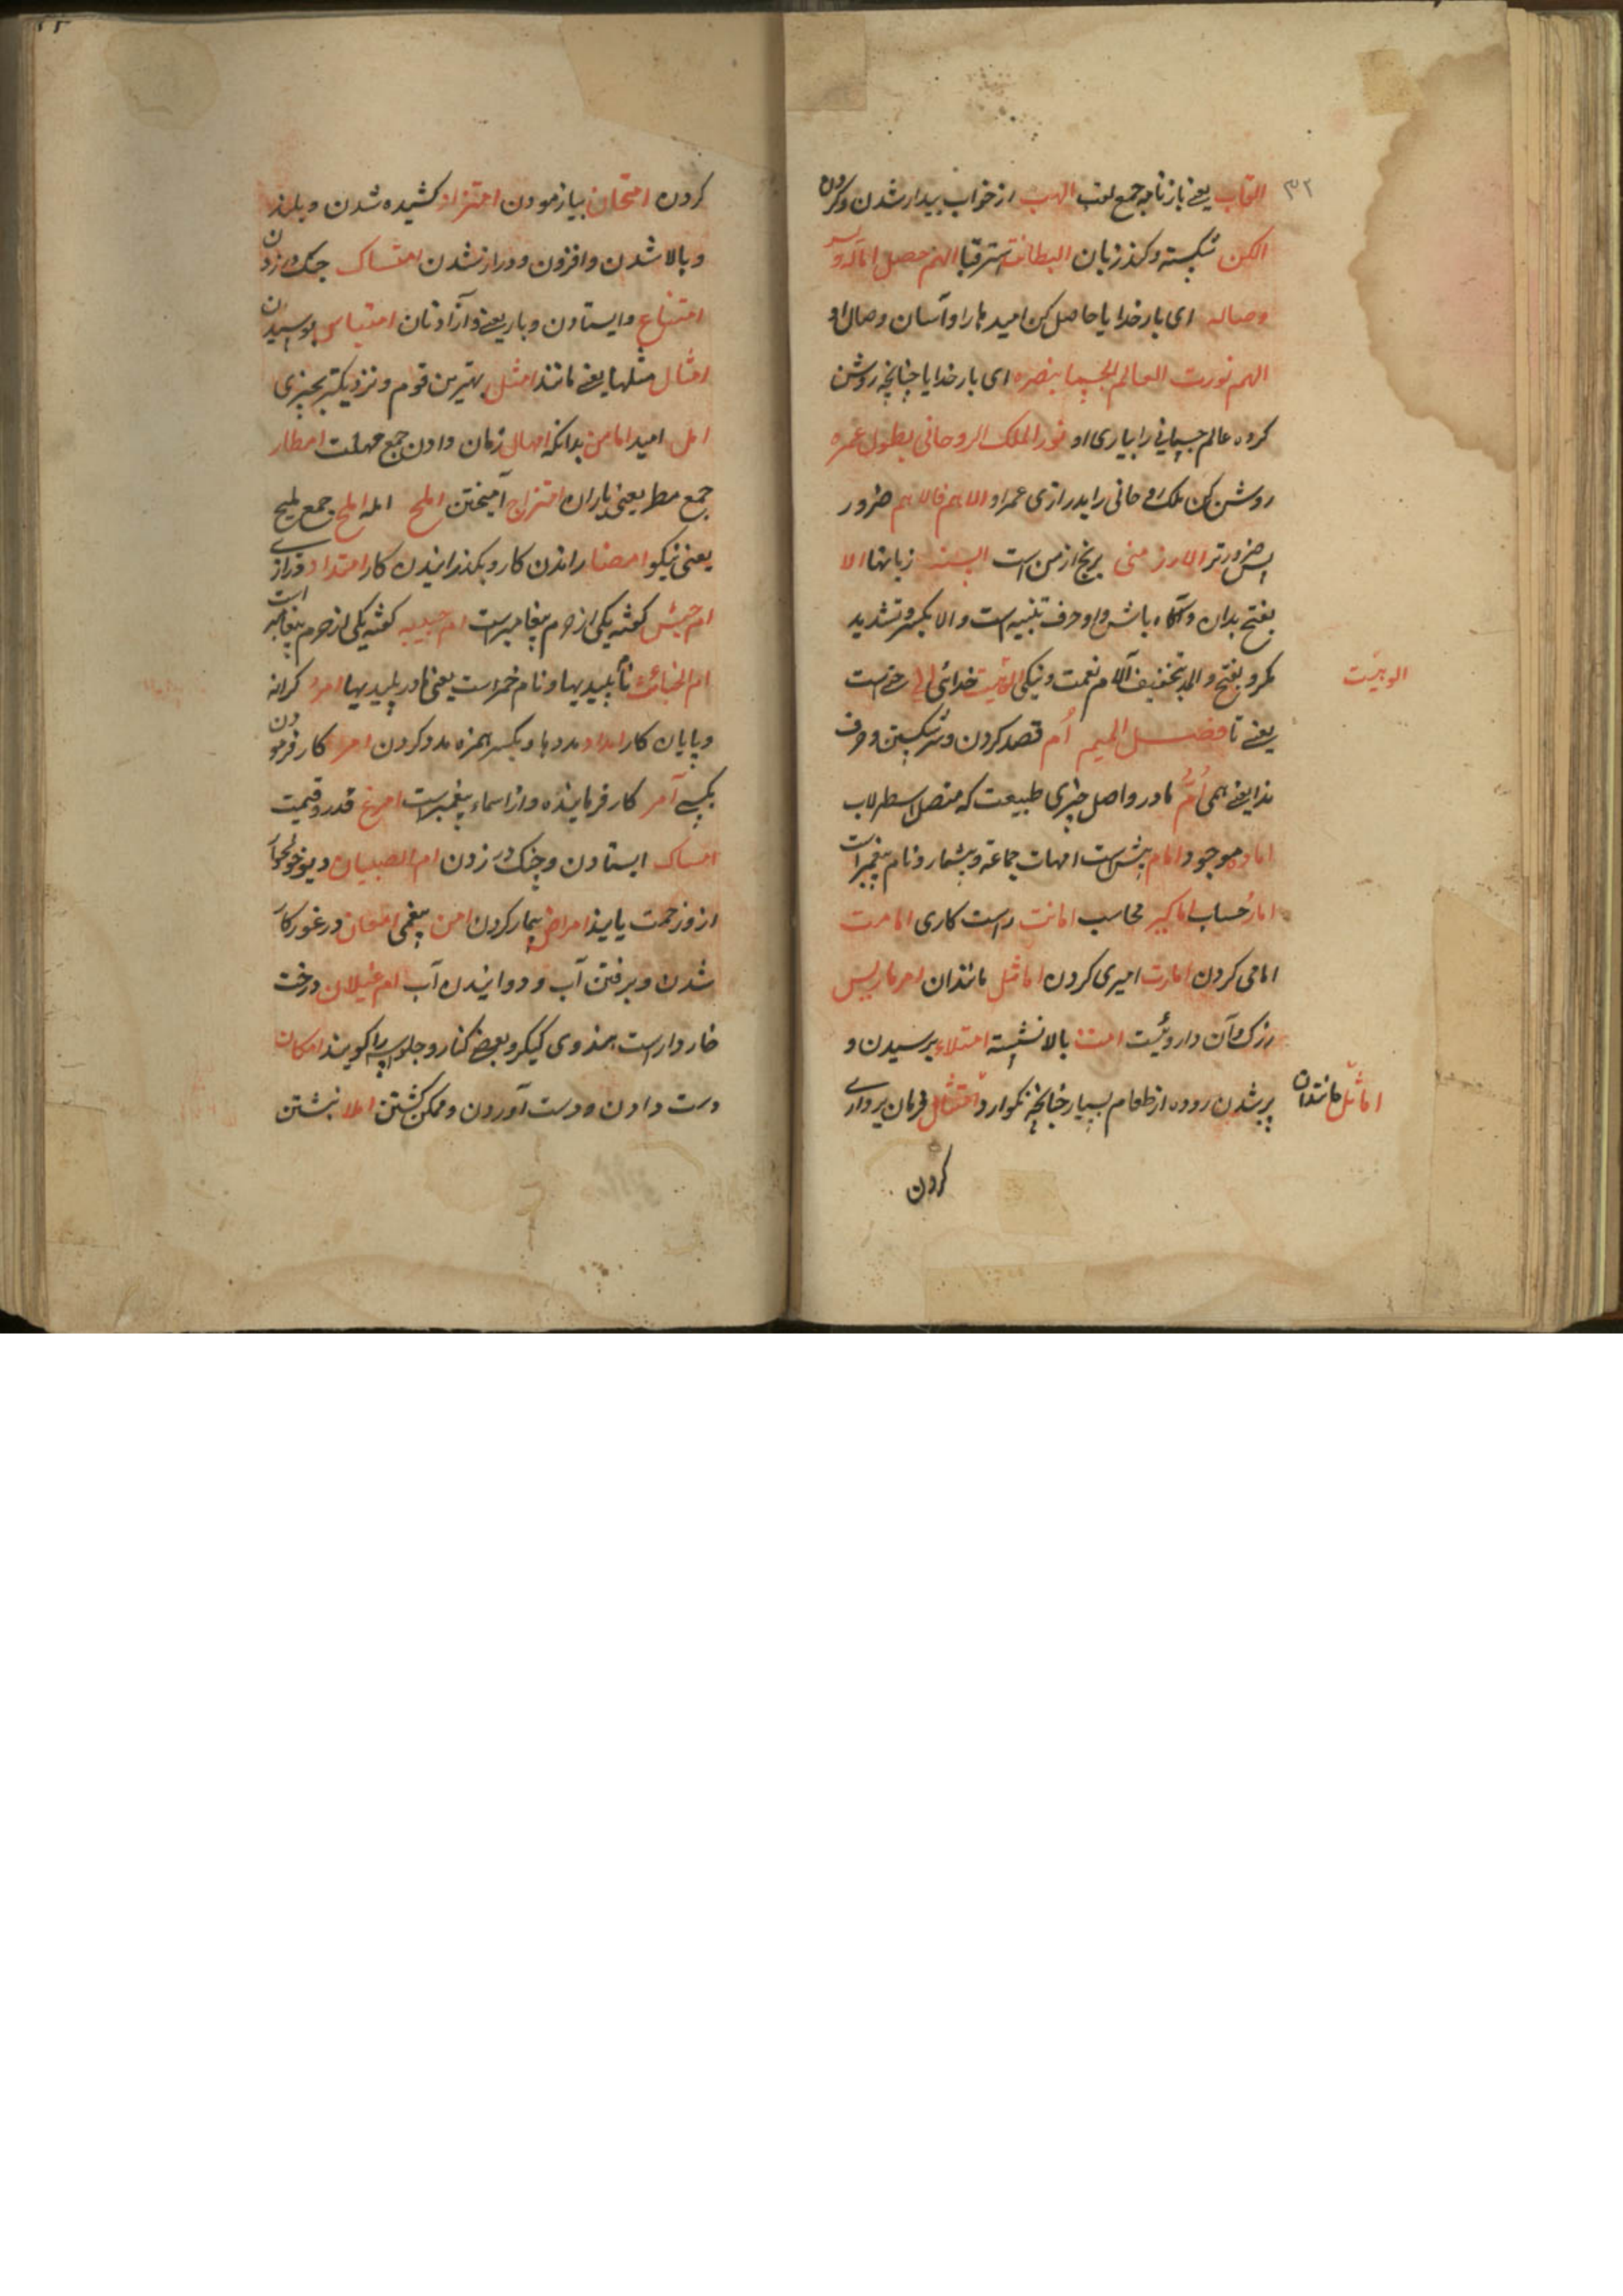 ٣٢
القاب یعنی بازنامه جمع لقب الهب از خواب بیدار شدن و کردن
الکن شکسته و کند زبان البطانة استر قبا اللهم حصل اماله و یسر
وصاله ای بار خدایا حاصل کن امید ما را و آسان وصال او
اللهم نورت العالم الجسما بنصره ای بار خدایا چنانچه روشن
کرده عالم جسمانی را بیاری او نور الملک الروحانی بطول عمره
روشن کن ملک روحانی را بدرازی عمر او الاهم فالاهم ضرور
پس ضرورتر الارز منی برنج از من است السنه زبانها الا
بفتح بدان و آگاه باش و او حرف تنبیه است و الا بکسر و تشدید
مگر و بفتح و المد بتخفیف آلام نعمت و نیکی الوهیت خدائی الی حرفست
الوهیت
یعنی تا فصل المیم اُم قصد کردن و سر شکستن و حرف
ندا یعنی ای اُمّ مادر و اصل چیزی طبیعت که متصل اسطرلاب
اماده موجود امام پیش است امهات جماعة و پیشمار و نام پیغمبر است
امار حساب اماکیر محاسب امانت راست کاری امامت
امامی کردن امارت امیری کردن اماثل مانندان امرباریس
زرک و آن داروئیست امت بالا نشسته امتلاء پرسیدن و
پر شدن روده از طعام بسیار چنانچه نگوارد امتثال فرمان برداری
اماثل مانندان
کردن
کردن امتحان بیازمودن امتزاد کشیده شدن و بلند
و بالا شدن و افزون و دراز شدن امتساک چنک در زدن
امتناع وایستادن و باریعنی و آزادتان امتیاس بوسیدن
امثال مثلها یعنی مانند امثل بهترین قوم و نزدیکتر بچیزی
امل امید اما من بدانکه امهال زمان دادن جمع مهلت امطار
جمع مطر یعنی باران امتزاج آمیختن املح امله املح جمع ملیح
یعنی نیکو امضا راندن کار و بگذرانیدن کار امتداد درازی
ام حبش کوشه یکی از حرم پیغامبر است ام حبیبه کوشه یکی از حرم پیغامبر است
ام الخبائث نا پلیدیها و نام خمر است یعنی مادر پلیدیها امد کرانه
و پایان کار امداد مددها و بکسر همزه مدد کردن امر کار فرمودن
بکسی آمر کار فرماینده و از اسماء پیغمبر است امرغ قدر و قیمت
امساک ایستادن و چنک در زدن ام الصبیان دیو
ازو زحمت یابند امراض بیمار کردن امن بیغمی امعان در غور کار
شدن و برفتن آب و دوانیدن آب ام غیلان درخت
خار دار است بهندوی کیکر و بعضی کنار و را گویند امکان
دست دادن و دست آوردن و ممکن گشتن املا نبشتن